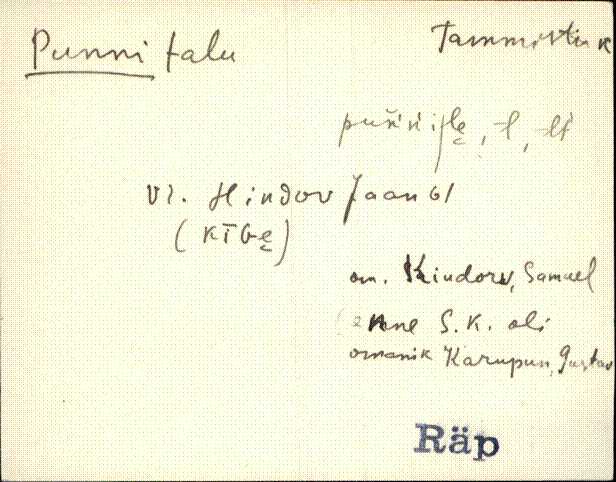 Punni talu
Tammistu k
puńńilę, -l, -lt
vr. Hindov Jaan 61
(kībę)
om. Kindorv, Samuel
(enne S.K. oli
omanik Karupun, Gustav
Räp